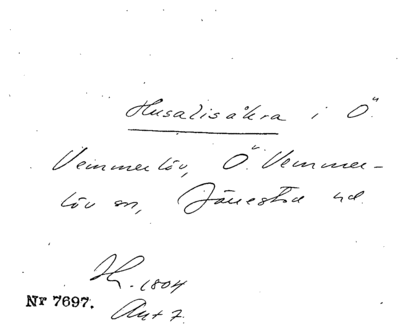 Husalisåkra i Ö.
Vemmerlöv, Ö. Vemmer-
löv sn, Järrestad hd.
Hk. 1804
Nr 7697.
Akt 7.